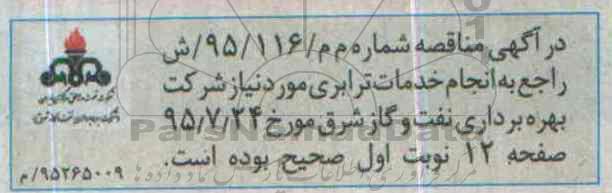 در آگهی مناقصه شماره م م/۹۵/۱۱۶/ش
راجع به انجام خدمات ترابری مورد نیاز شرکت
بهره برداری نفت و گاز شرق مورخ ۹۵/۷/۲۴
صفحه ۱۲ نوبت اول صحیح بوده است.
۹۵۲۶۵۰۰۹/م
ParsNamadData